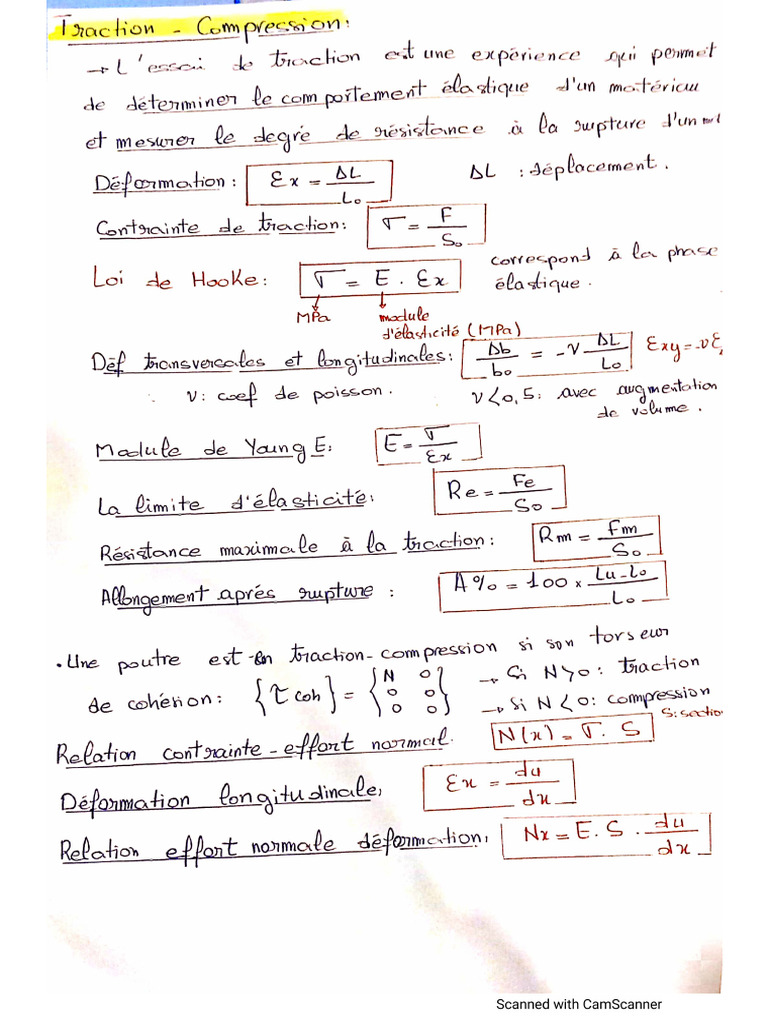 Traction - Compression:
→ L'essai de traction est une expérience qui permet
de déterminer le comportement élastique d'un matériau
et mesurer le degré de résistance à la rupture d'un
Déformation : Ɛx = ΔL / L₀ ΔL : déplacement.
Contrainte de traction: σ = F / S₀
Loi de Hooke: σ = E . Ɛx correspond à la phase
élastique.
MPa module
d'élasticité (MPa)
Déf transversales et longitudinales: Δb / b₀ = -ν ΔL / L₀ Ɛxy = -νƐ
ν: coef de poisson. ν < 0,5 : avec augmentation
de volume.
Module de Young E: E = σ / Ɛx
La limite d'élasticité: Re = Fe / S₀
Résistance maximale à la traction: Rm = Fm / S₀
Allongement aprés rupture : A% = 100 × Lu-L₀ / L₀
. Une poutre est en traction-compression si son torseur
de cohésion: {τ coh} = {N 0 → Si N>0: traction
0 0
0 0} → Si N<0: compression
Relation contrainte-effort normal. N(x) = σ. S S: section
Déformation longitudinale, Ɛx = du / dx
Relation effort normale déformation, Nx = E. S . du / dx
Scanned with CamScanner